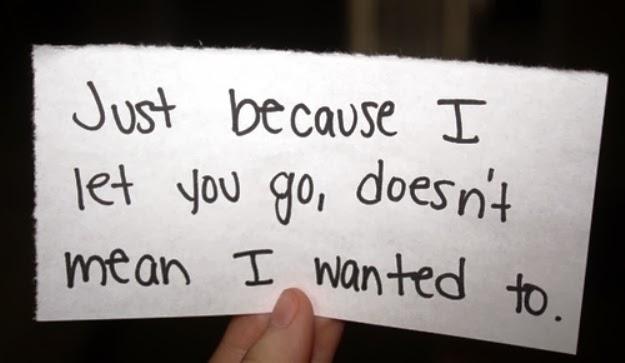 Just because I
let you go, doesn't
mean I wanted to.